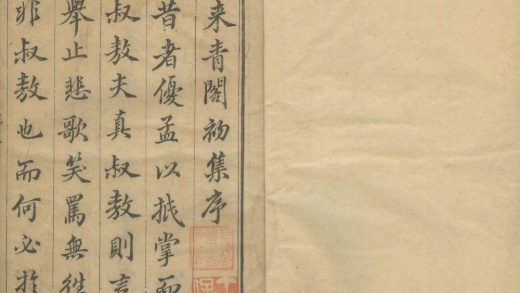 来青閣初集序
昔者優孟以抵掌而
叔敖夫真叔敖則言
舉止悲歌笑罵無徃
非叔敖也而何必於